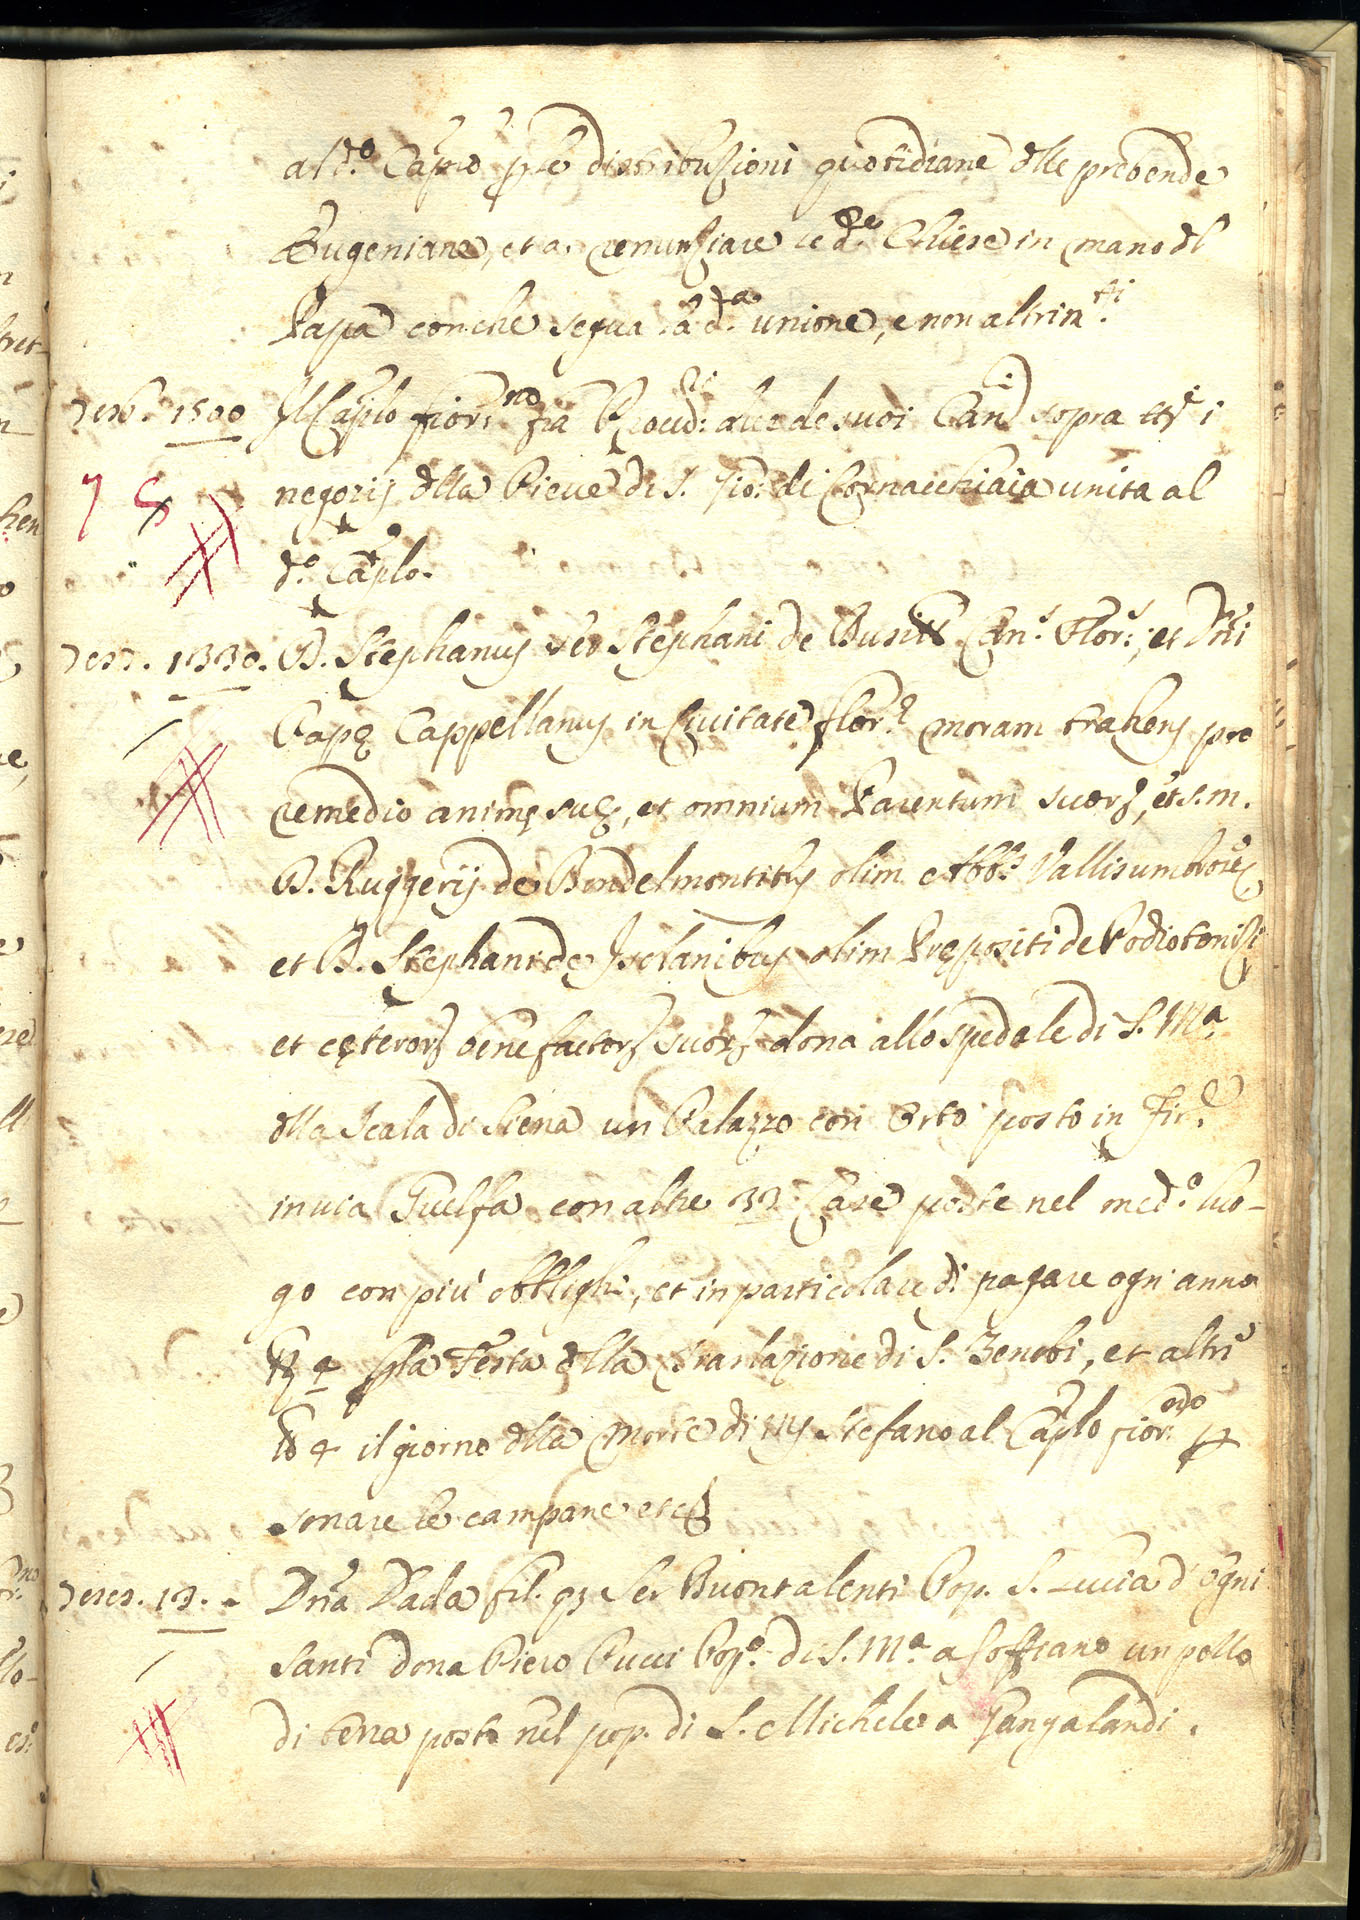 al d.º Caplo p le distribuzioni quotidiane dlle prebende
Eugeniane, et a renunziare le d.e Chiese in mano dl
Papa con che segua la d.ta unione, e non altrim.ti
Il Caplo fior.no fa Procud.ri alc.i de suoi Can.i sopra tti i
1500
negozij dlla Pieve di S. Gio: di Cornacchiaia unita al
d.º Caplo.
1330. D. Stephanus Ser Stephani de Busitis Can.s Flor.s, et Dni
Papę Cappellanus in Civitate flor.ę moram trahens pro
remedio animę suę, et omnium Parentum suorȝ, et s.m.
D. Ruggerij de Bondelmontibus olim Abb.s Vallisumbrosę
et D. Stephani de Isclanibus olim Prępositi de Podiobonisi
et cęterorȝ benefactorȝ suorȝ dona allo spedale di S. M.a
dlla Scala di Siena un Palazzo con Orto posto in Fir.e
in via Guelfa con altre 33 Case poste nel med.º luo-
go con più obblighi, et in particolare di pagare ogni anno
4 p la Festa dlla Traslazione di S. Zenobi, et altri
4 il giorno dlla Morte di Stefano al Caplo fior.no p
sonare le campane etc
13. - Dna Dada fil. qȝ Ser Buontalenti Pop. S. Lucia d'ogni
santi dona Piero Pucci Pop.º di S. M.a a Soffiano un pezzo
di terra posto nel pop. di S. Michele a Gangalandi.